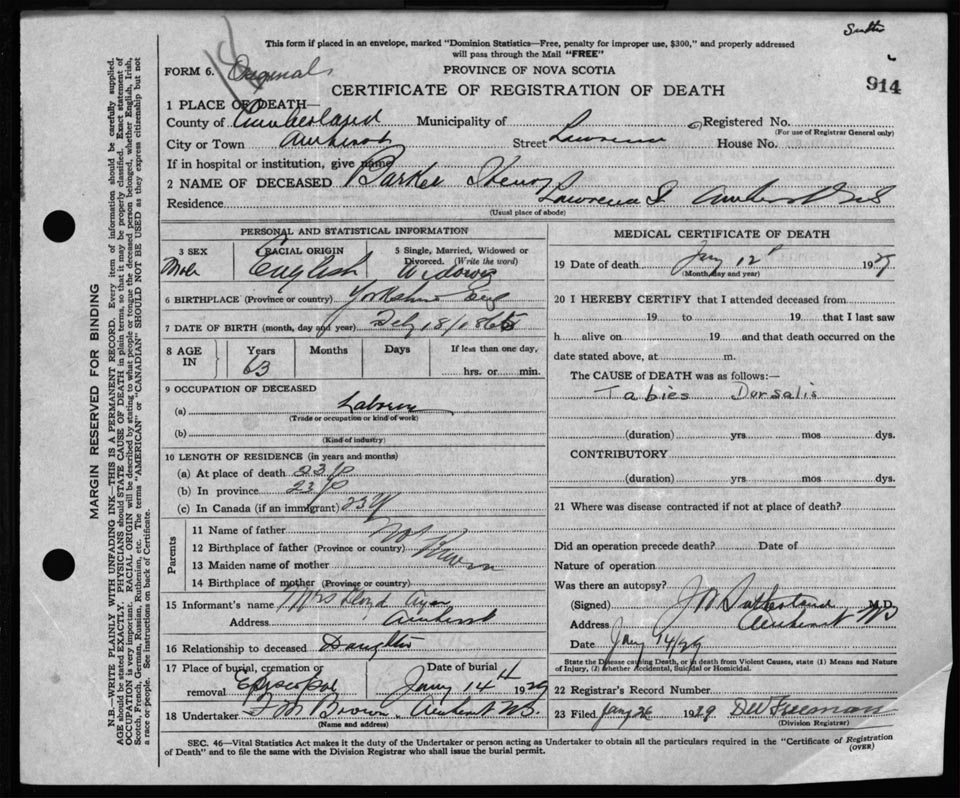 This form if placed in an envelope, marked "Dominion Statistics—Free, penalty for improper use, $300," and properly addressed
will pass through the Mail "FREE"
FORM 6. Original
PROVINCE OF NOVA SCOTIA
914
CERTIFICATE OF REGISTRATION OF DEATH
1 PLACE OF DEATH—
County of Cumberland Municipality of Registered No.
(For use of Registrar General only)
City or Town Amherst Street Lawrence House No.
If in hospital or institution, give name
2 NAME OF DECEASED Barker Henry
Residence Lawrence St Amherst NS
(Usual place of abode)
PERSONAL AND STATISTICAL INFORMATION
3 SEX RACIAL ORIGIN 5 Single, Married, Widowed or Divorced. (Write the word)
Male English Widower
6 BIRTHPLACE (Province or country) Yorkshire Eng
7 DATE OF BIRTH (month, day and year) Feby 18/1865
8 AGE IN Years Months Days If less than one day,
63 hrs. or min.
9 OCCUPATION OF DECEASED
(a) Laborer
(Trade or occupation or kind of work)
(b)
(Kind of industry)
10 LENGTH OF RESIDENCE (in years and months)
(a) At place of death 23 y
(b) In province 23 y
(c) In Canada (if an immigrant) 23 y
Parents
11 Name of father Not
12 Birthplace of father (Province or country) Known
13 Maiden name of mother
14 Birthplace of mother (Province or country)
15 Informant's name Mrs Lloyd
Address Amherst
16 Relationship to deceased Daughter
17 Place of burial, cremation or removal Episcopal
Date of burial Jany 14th 1929
18 Undertaker F M Brown Amherst NS
(Name and address)
MEDICAL CERTIFICATE OF DEATH
19 Date of death Jany 12 1929
(Month, day and year)
20 I HEREBY CERTIFY that I attended deceased from
19 to 19 that I last saw
h alive on 19 and that death occurred on the
date stated above, at m.
The CAUSE of DEATH was as follows:—
Tabies Dorsalis
(duration) yrs. mos dys.
CONTRIBUTORY
(duration) yrs mos dys.
21 Where was disease contracted if not at place of death?
Did an operation precede death? Date of
Nature of operation
Was there an autopsy?
(Signed) J W Sutherland M.D.
Address Amherst NS
Date Jany 14/29
State the Disease causing Death, or in death from Violent Causes, state (1) Means and Nature
of Injury, (2) whether Accidental, Suicidal or Homicidal.
22 Registrar's Record Number
23 Filed Jany 26 1929 DW Freeman
(Division Registrar)
SEC. 46—Vital Statistics Act makes it the duty of the Undertaker or person acting as Undertaker to obtain all the particulars required in the "Certificate of Registration
of Death" and to file the same with the Division Registrar who shall issue the burial permit.
(OVER)
MARGIN RESERVED FOR BINDING
N.B.—WRITE PLAINLY WITH UNFADING INK—THIS IS A PERMANENT RECORD. Every item of information should be carefully supplied.
AGE should be stated EXACTLY. PHYSICIANS should STATE CAUSE OF DEATH in plain terms, so that it may be properly classified. Exact statement of
OCCUPATION is very important. RACIAL ORIGIN will be described by stating to what people or tongue the deceased person belonged, whether English, Irish,
Scotch, French, German, Russian, Ruthenian, etc. The terms "AMERICAN" or "CANADIAN" SHOULD NOT BE USED as they express citizenship but not
a race or people. See instructions on back of Certificate.